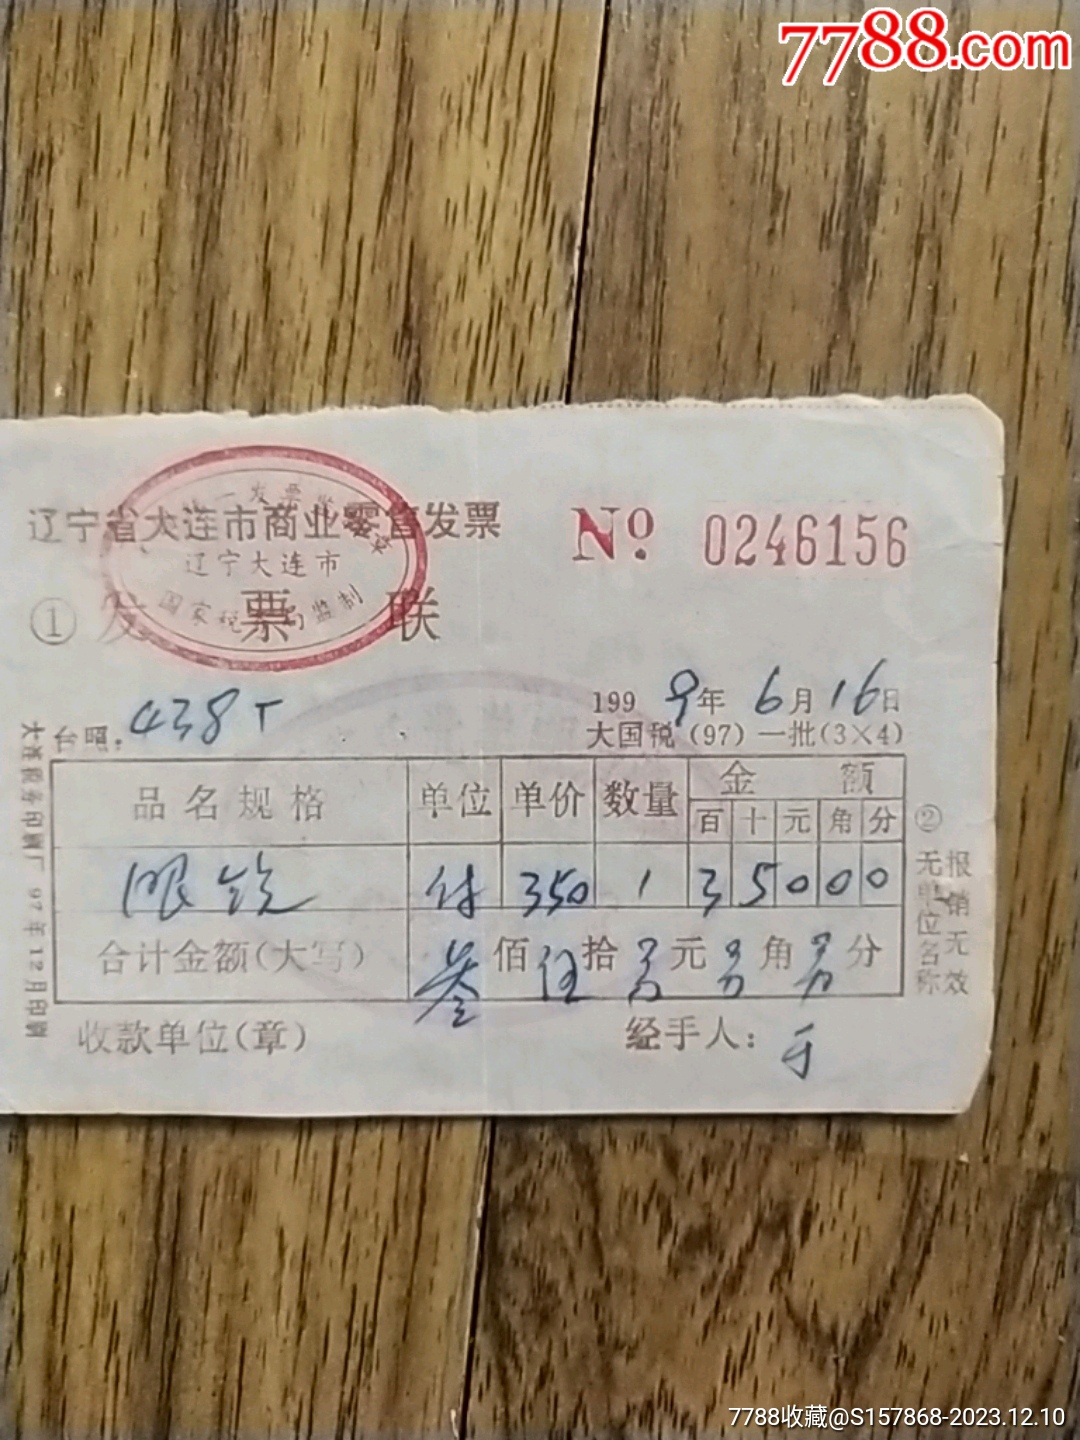 7788.com
辽宁省大连市商业零售发票
统一发票监制章
辽宁大连市
国家税务局监制
No. 0246156
① 发票联
438T
1999年6月16日
大国税(97)一批(3×4)
品名规格 单位 单价 数量 金额
百 十 元 角 分
眼镜 付 350 1 3 5 0 0 0
合计金额(大写) 叁佰伍拾另元另角另分
收款单位(章) 经手人:于
大连服务印刷厂97年12月印刷
② 无单位名称
报销无效
7788收藏@S157868-2023.12.10